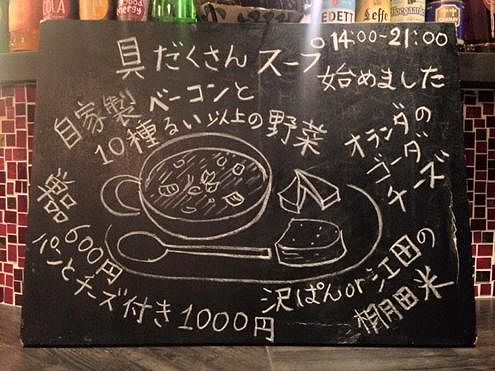 SODA
GOOD
EDETT
Leffe
Hoegaarden
14:00-21:00
具だくさんスープ
始めました
自家製ベーコンと
10種るい以上の野菜
オランダの
ゴーダ
チーズ
単品600円
パンとチーズ付き1000円
沢ぱんor江田の
棚田米